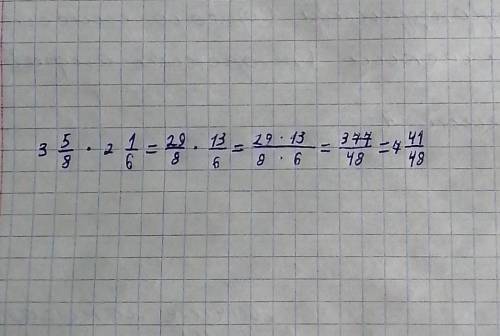 3 5/8 · 2 1/6 = 29/8 · 13/6 = 29 · 13/8 · 6 = 377/48 = 7 41/48